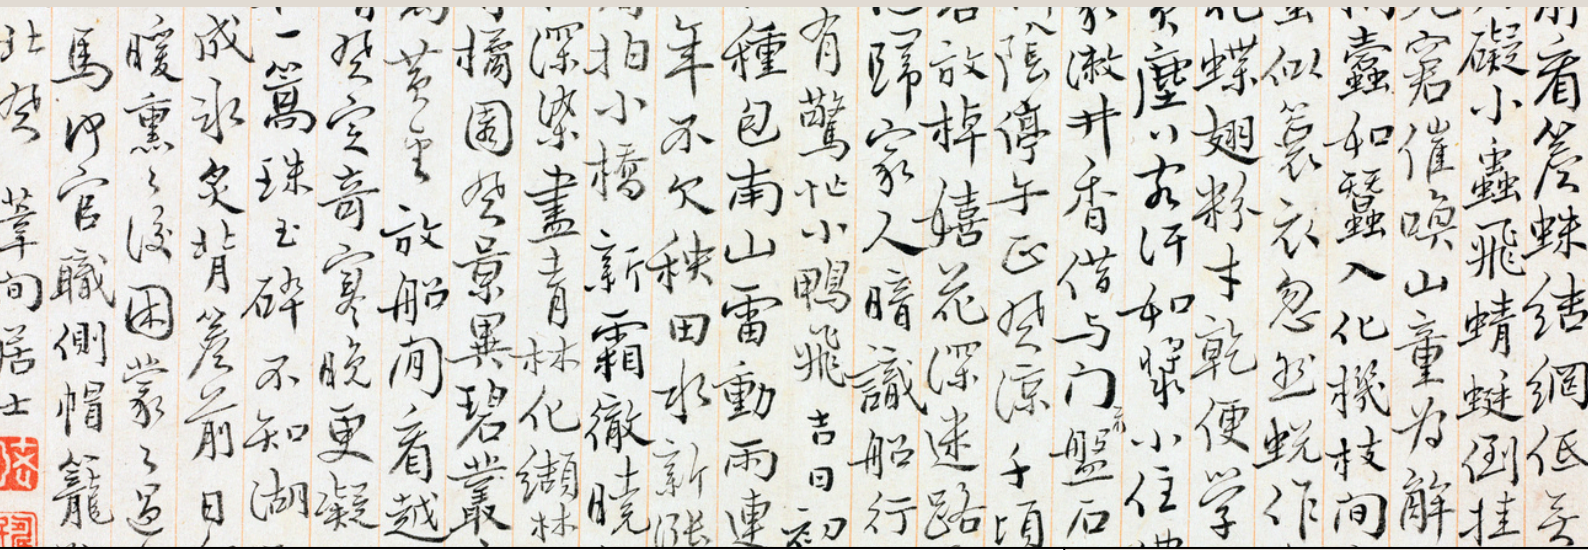 看簷蛛結網低無
礙小蟲飛蜻蜓倒挂
兒窘催喚山童为解
蠹如蠶入化機枝间
蚕似蓑衣忽然蛻作
花蝶翅粉才乾便学
黃塵行客汗如漿小住
家漱井香借与门前盤石
陰停午正風涼千頃
放棹嬉花深迷路
歸家人暗識船行
有驚忙小鴨飛吉日初
種包南山雷動雨連
年不欠秧田水新漲
拍小橋新霜徹曉
深染盡青林化纈林
橘園風景異碧叢
黃金放船闲看越
風定奇寒晚更凝
一篙珠玉碎不知湖
成冰炙背簷前日
暖熏々後困蒙々過
馬何官職側帽籠
北風居士